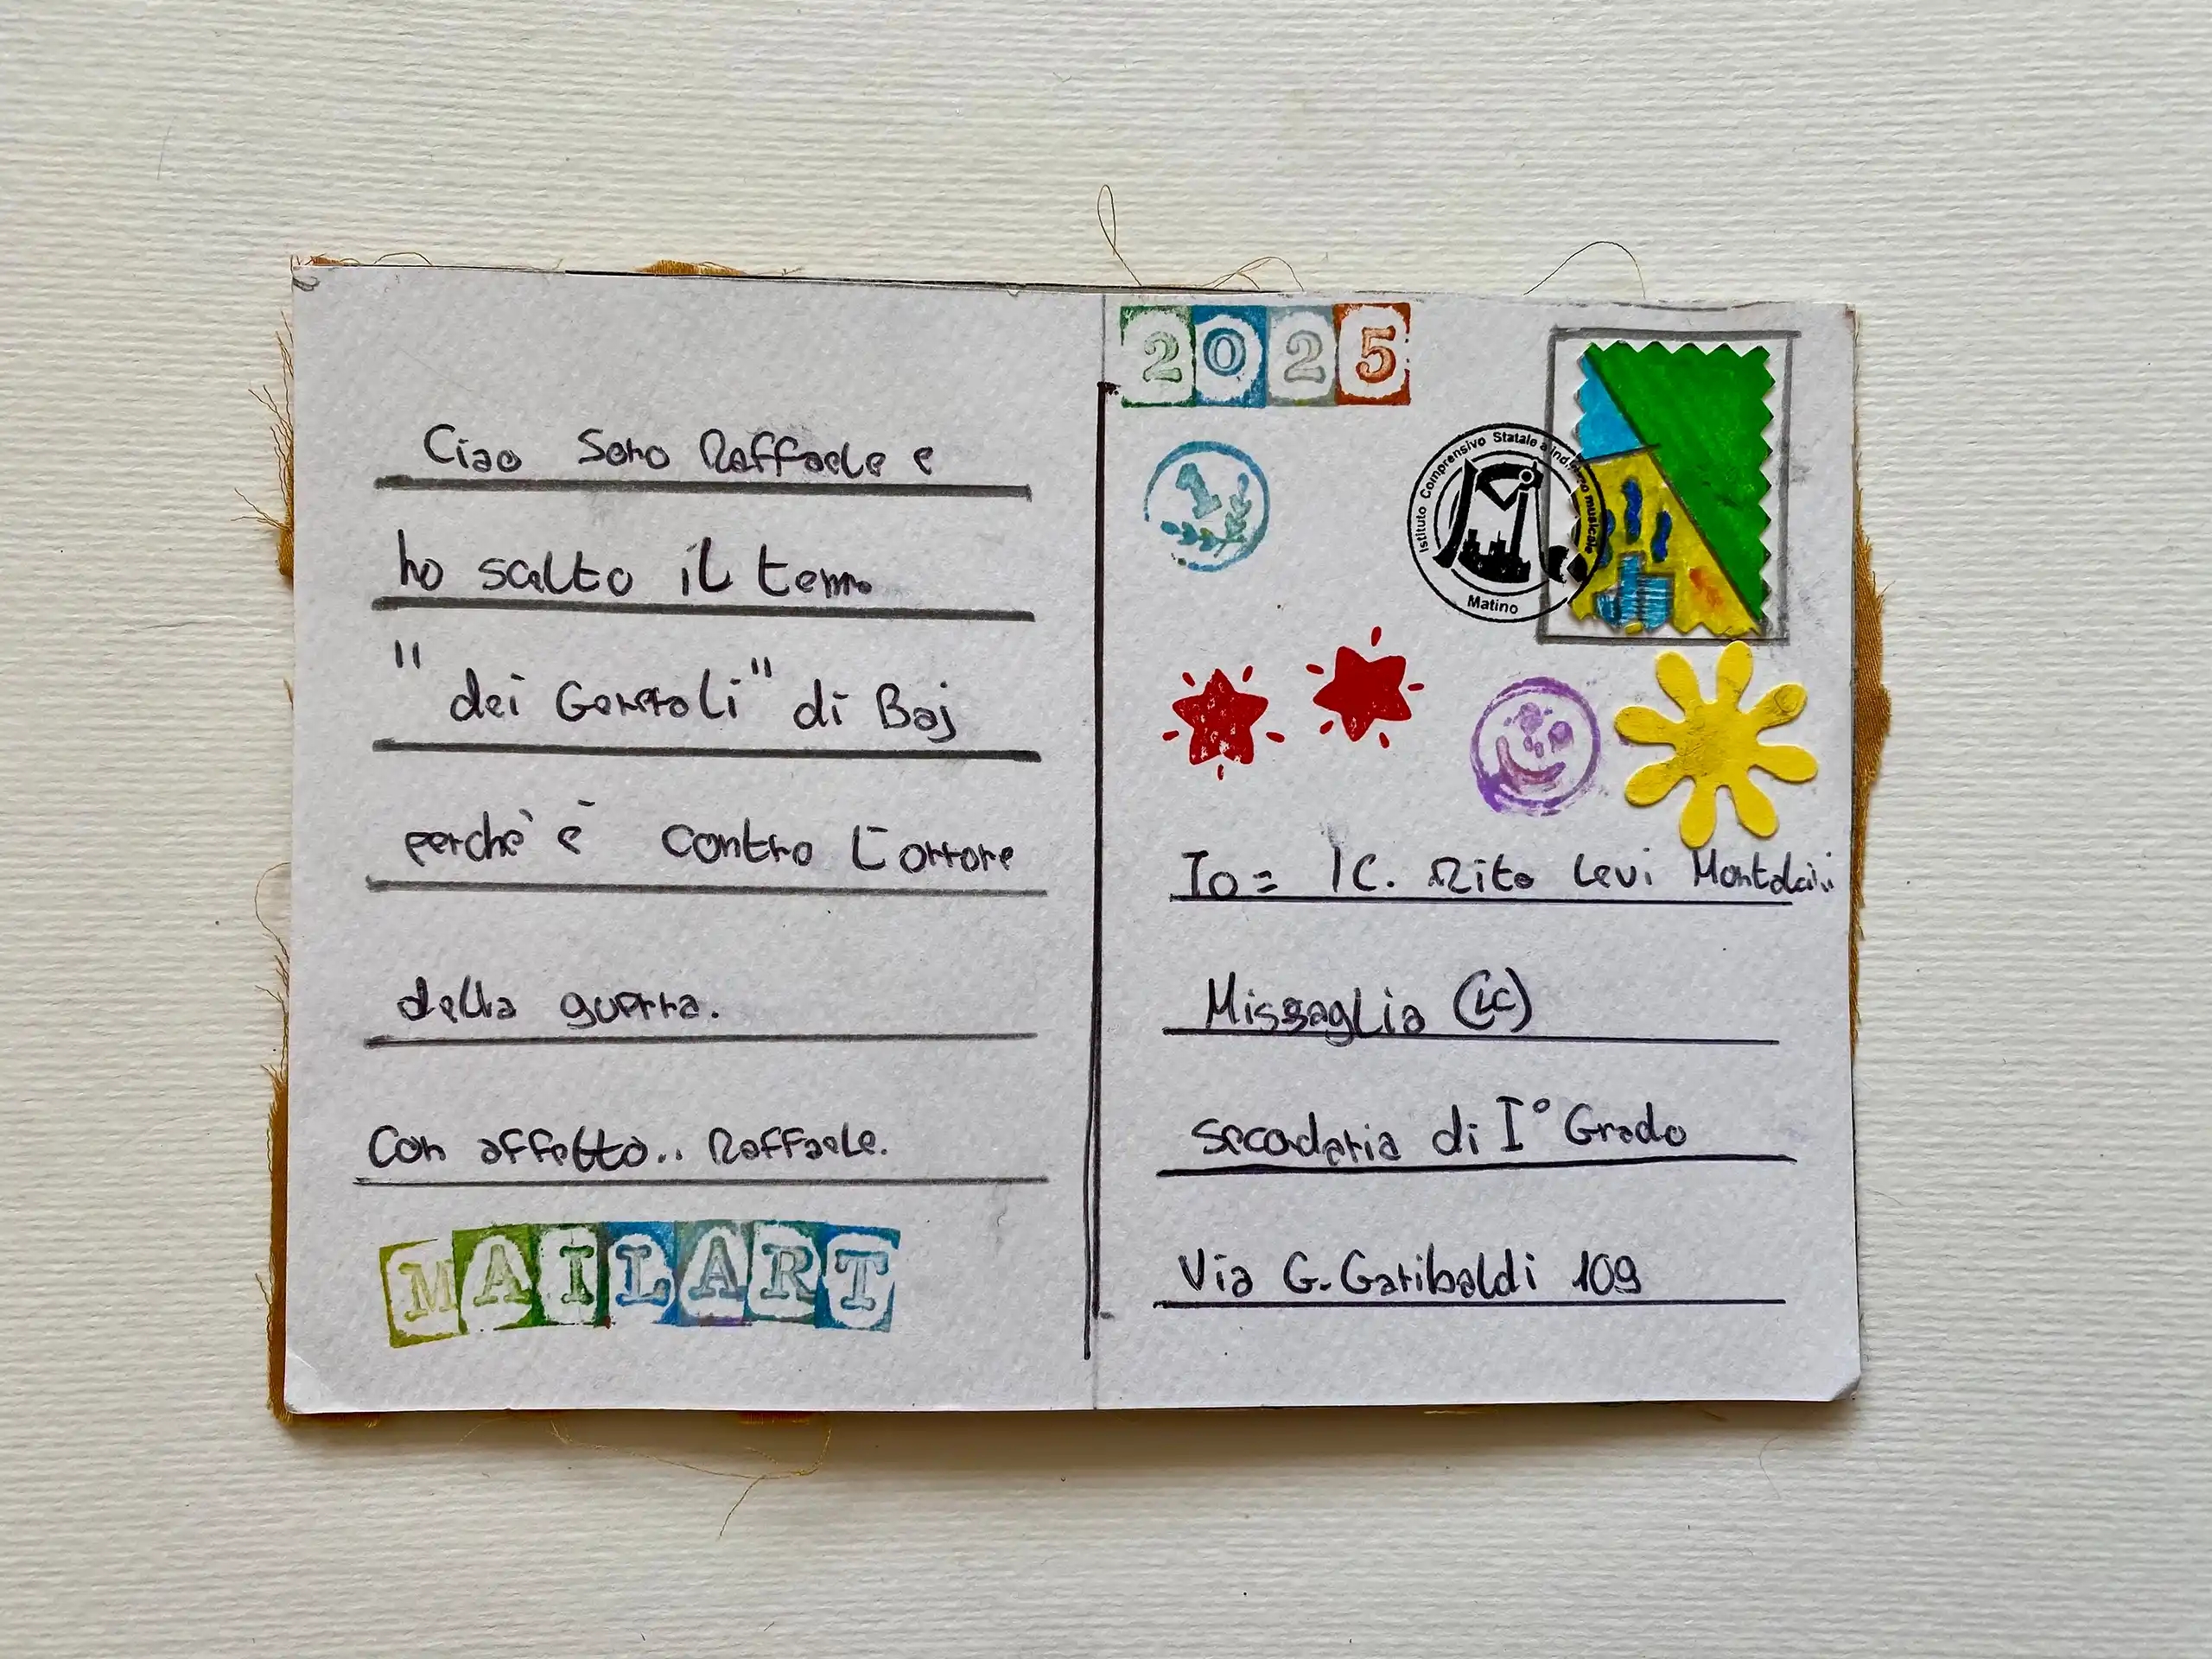 Ciao Sono Raffaele e
ho scelto il tema
"dei Generali" di Baj
perchè è contro l'orrore
della guerra.
Con affetto.. Raffaele.
MAILART
2025
1
Istituto Comprensivo Statale a indirizzo musicale
Matino
To= IC. Rita Levi Montalcini
Missaglia (LC)
secodaria di I° Grado
Via G. Garibaldi 109